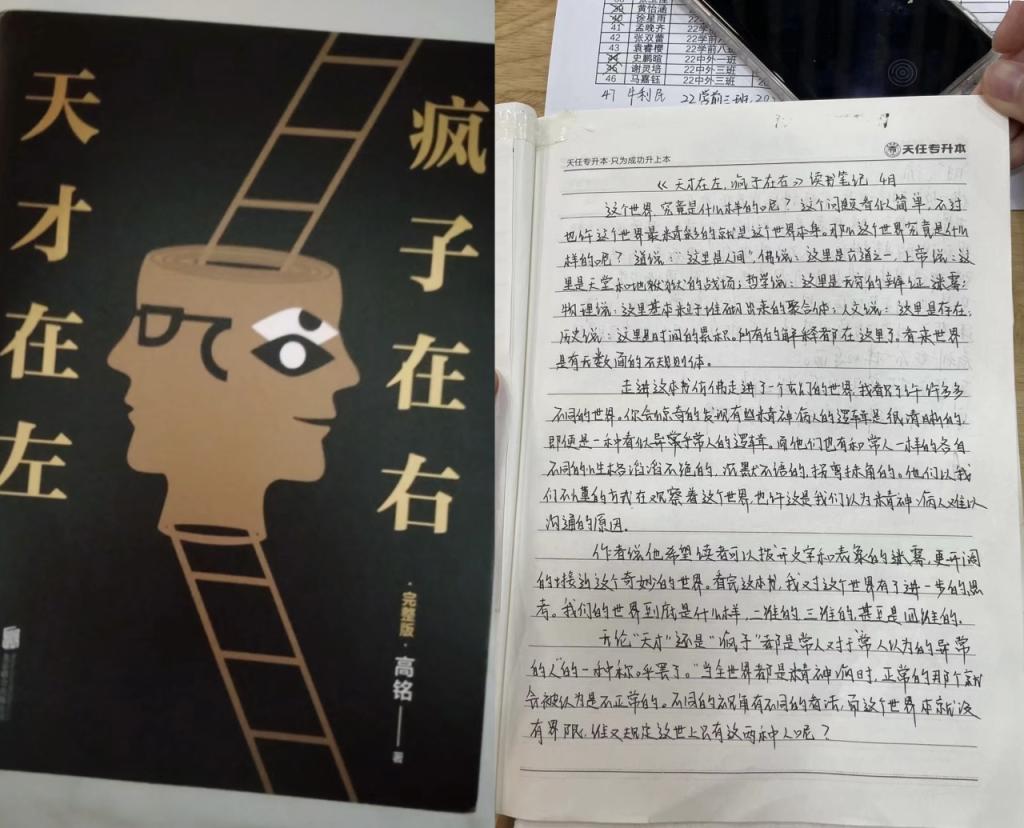 天才在左
疯子在右
·完整版·
高铭——著
黄怡涵
40 徐星雨
41 孟晚齐
42 张双蕾 22学前
43 袁睿樱 22学前八班
史鹏暄 22中外一班
谢灵培 22中外三班
46 马嘉钰 22中外三班
47 牛利民 22学前三班
天任专升本·只为成功升上本
天任专升本
《天才在左,疯子在右》读书笔记 4月
这个世界,究竟是什么样的呢?这个问题看似简单,不过
也许这个世界最精彩的就是这个世界本身。那么这个世界究竟是什么
样的呢?道说:“这里是人间”佛说:这里是六道之一,上帝说:这
里是天堂和地狱的战场;哲学说:这里是无穷的辩证迷雾;
物理说:这里基本粒子堆砌出来的聚合体;人文说:这里是存在;
历史说:这里是时间的累积。所有的解释都在这里了,看来世界
是有无数面的不规则体。
走进这本书仿佛走进了一个玄幻的世界,我看到了许许多多
不同的世界。你会惊奇的发现有些精神病人的逻辑是很清晰的,
即便是一种看似异常于常人的逻辑。而他们也有和常人一样的各自
不同的性格滔滔不绝的,沉默不语的,拐弯抹角的。他们以我
们不懂的方式在观察着这个世界,也许这是我们以为精神病人难以
沟通的原因。
作者说他希望读者可以拨开文字和表象的迷雾,更开阔
的接触这个奇妙的世界。看完这本书,我对这个世界有了进一步的思
考。我们的世界到底是什么样,二维的,三维的,甚至是四维的。
无论“天才”还是“疯子”都是常人对于常人以为的异常
的人的一种称乎罢了。“当全世界都是精神病时,正常的那个就
会被认为是不正常的。不同的视角有不同的看法,而这个世界本就没
有界限,谁又规定这世上只有这两种人呢?